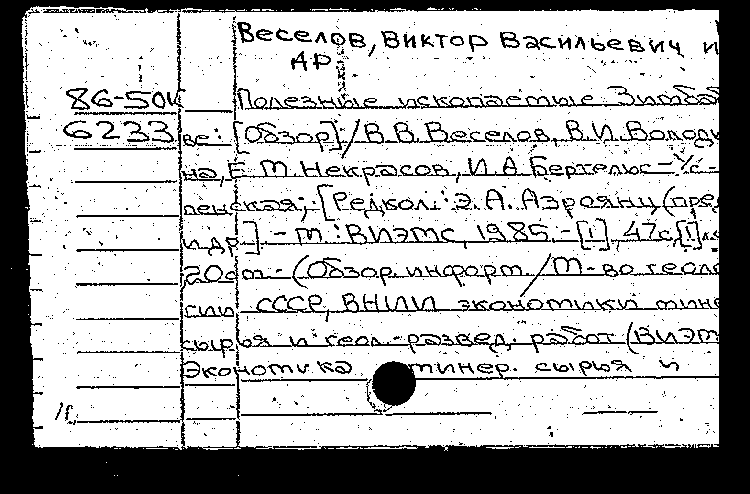 Веселов, Виктор Васильевич и
др.
86-50к
6233
Полезные ископаемые Зимбаб
ве: [Обзор] / В.В. Веселов, В.И. Володи
на, Е.М. Некрасов, И.А. Бергельс-Ус-
пенская; [Редкол.: Э.А. Азроянц (пред
и др.]. - М.: ВИЭМС, 1985. - [1], 47с, [1] с.
20см. - (Обзор. информ. / М-во геоло
гии СССР, ВНИИ экономики минер
сырья и геол.-развед. работ (ВИЭМ
Экономика минер. сырья и